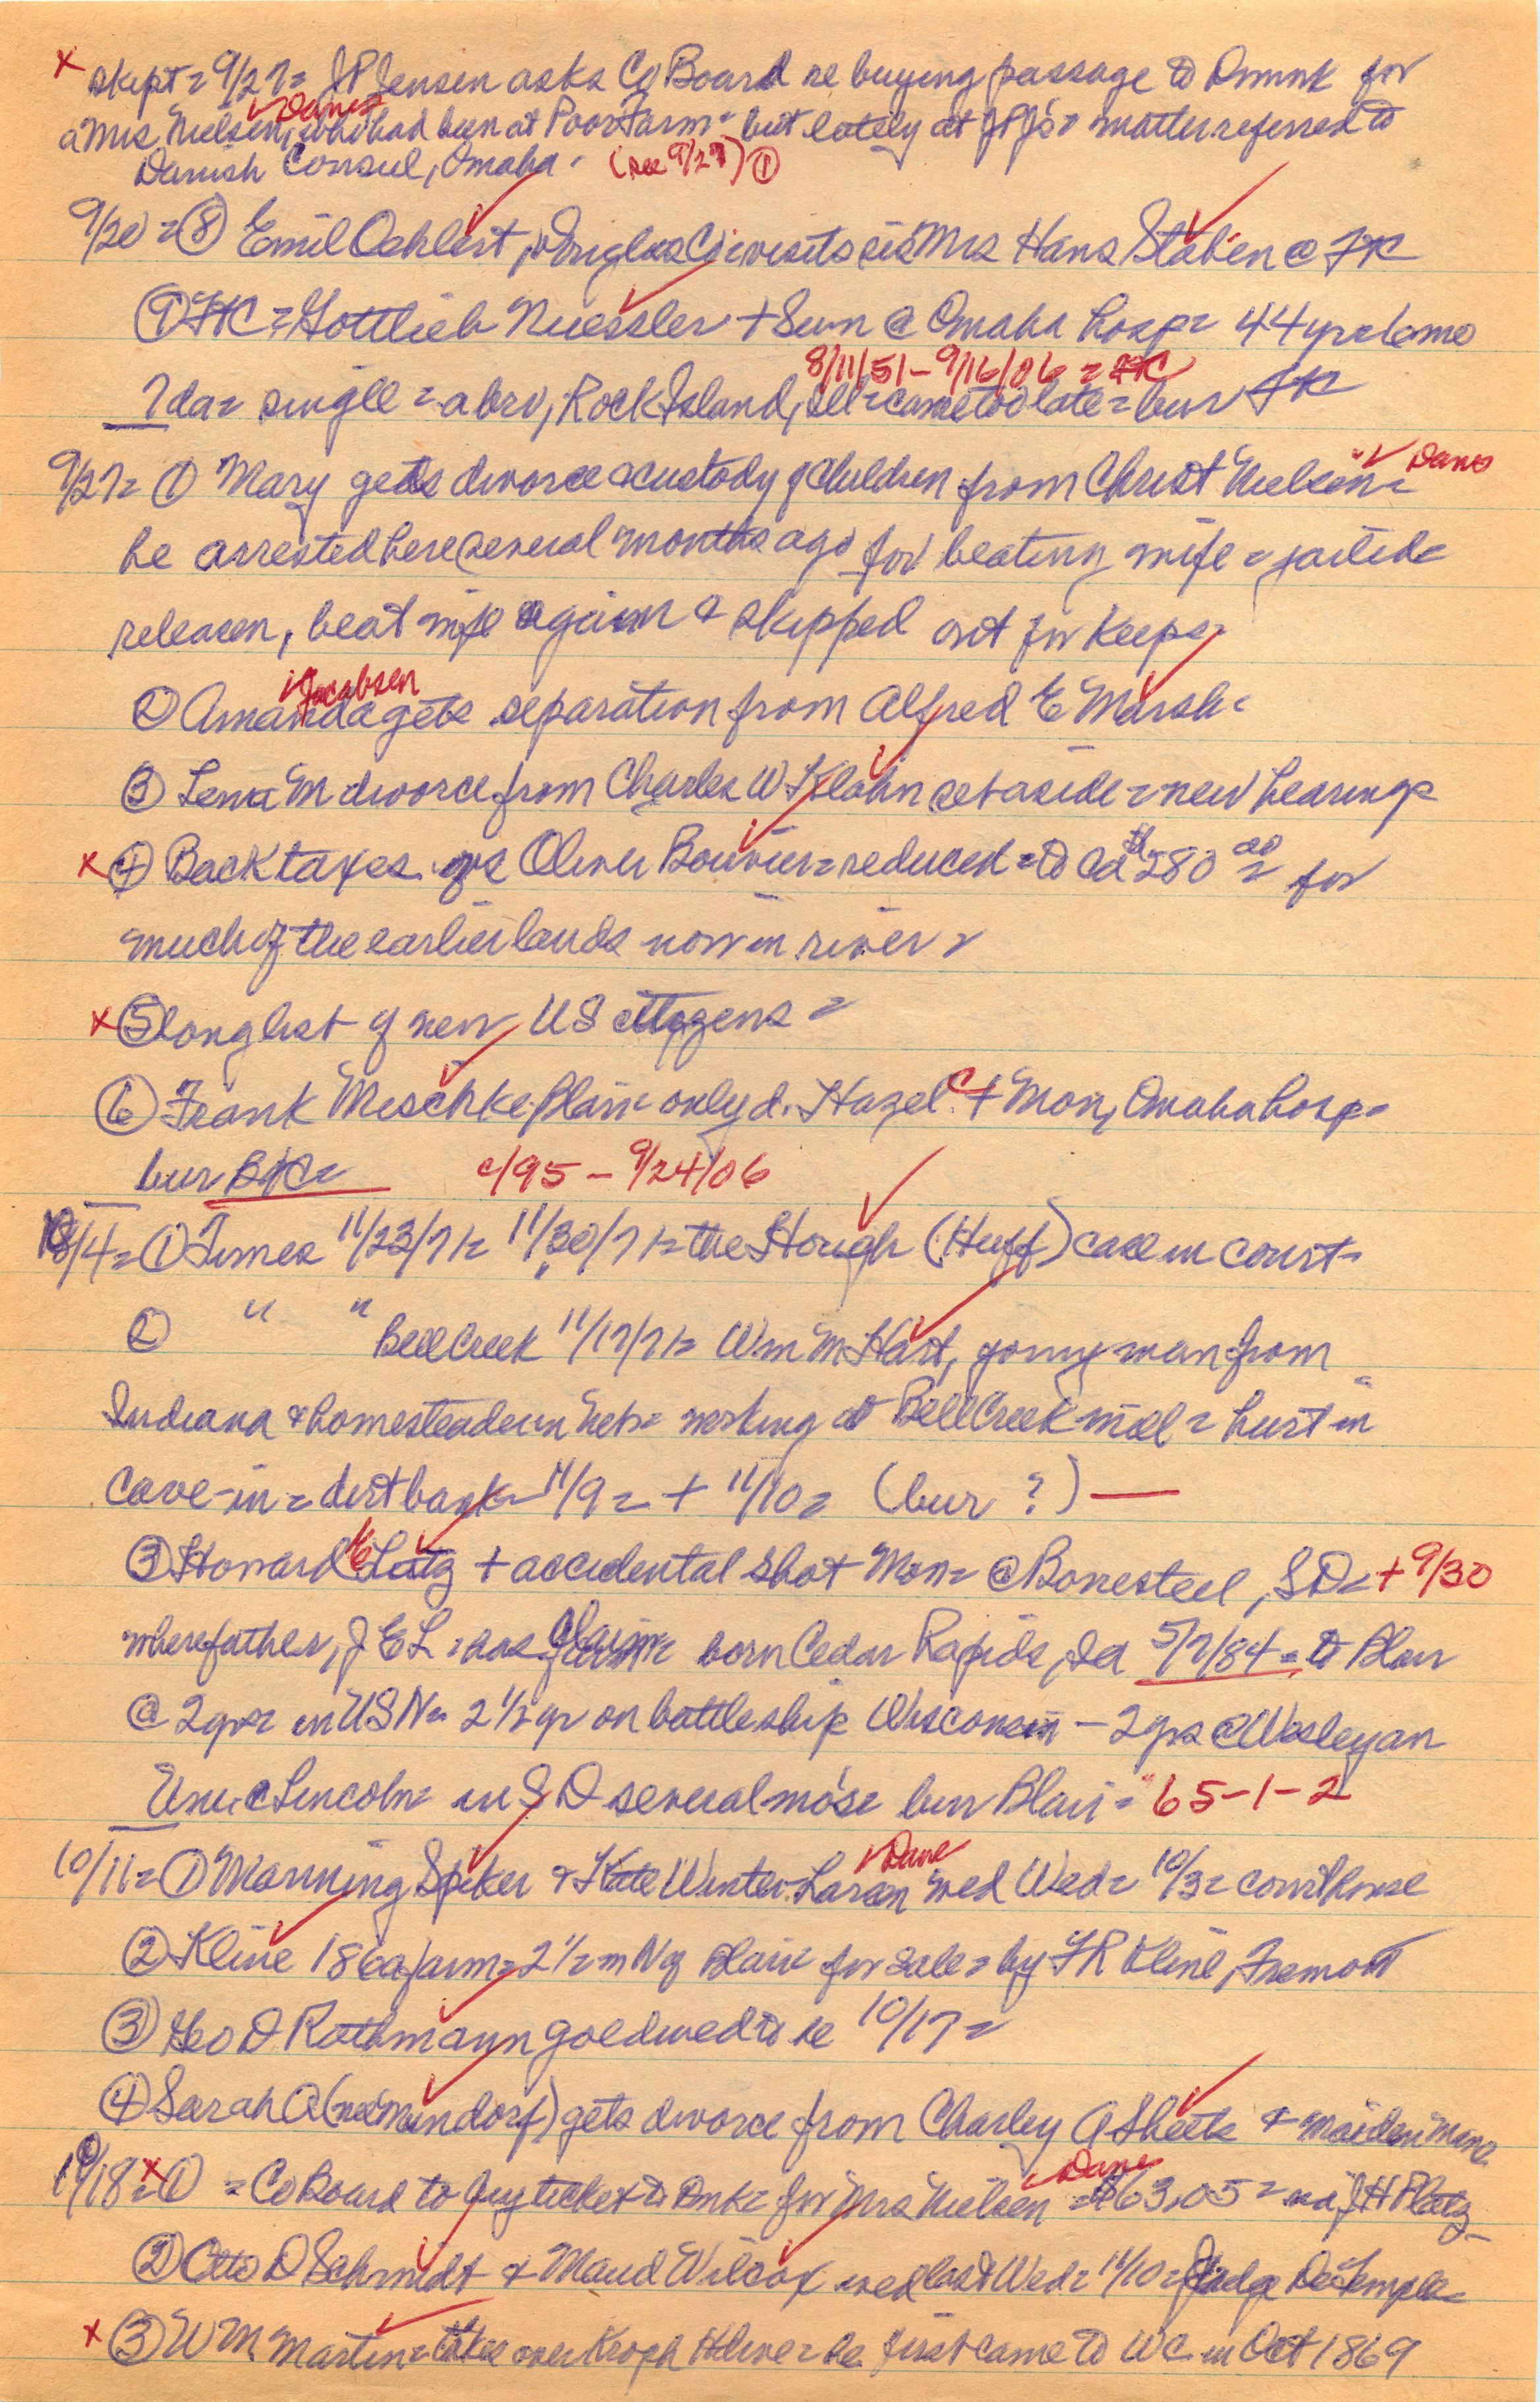 x skipt = 9/27 = JP Jensen asks Co Board re buying passage to Dnmrk for
✓ Danes
a Mrs Nielsen, who had been at Poor Farm = but lately at JPJ's = matter referred to
Danish Consul, Omaha. (see 9/27) ①
9/20 = ⑧ Emil Oehlert, Douglas Co = visits sis Mrs Hans Staben @ FtC
⑨ FtC = Gottlieb Nuessler + Sun @ Omaha hosp = 44 yrs 6 mo
8/11/51 – 9/16/06 = FtC
7 da = single = a bro, Rock Island, Ill = came too late = bur FtC
9/27 = ① Mary gets divorce & custody of children from Christ Nielsen = ✓ Danes
he arrested here several months ago for beating wife = jailed =
released, beat wife again & skipped out for keeps =
✓ Jacobsen
② Amanda gets separation from Alfred E Marsh =
③ Lena M divorce from Charles W Klahn set aside = new hearing =
x ④ Back taxes vs Oliver Bouvier = reduced = to ca $280 00 = for
much of the earlier lands now in river =
x ⑤ long list of new US citizens =
⑥ Frank Meschke Blair only d. Hazel C + Mon, Omaha hosp =
bur BtC = c/95 – 9/24/06
10/4 = ① Times 11/23/71 = 11/30/71 = the Hough (Huff) case in court =
② " " Bell Creek 11/17/71 = Wm M Hart, young man from
Indiana & homesteader in Neb = working at Bell Creek mill = hurt in
cave-in = dirt bank = 11/9 = + 11/10 = (bur ?) —
③ Howard E Lutz + accidental shot Mon = @ Bonesteel, SD = + 9/30
where father, J E L = has claim = born Cedar Rapids, Ia 5/7/84 = to Blair
@ 2 yrs = in USN = 2 1/2 yr on battleship Wisconsin – 2 yrs @ Wesleyan
Univ @ Lincoln = in SD several mos = bur Blair = 65-1-2
✓ Dane
10/11 = ① Manning Spiker & Kate Winter Larsen wed Wed = 10/3 = courthouse
② Kline 186 a farm = 2 1/2 m N of Blair for sale = by F R Kline, Fremont
③ Geo D Rathmann gold wed to be 10/17 =
④ Sarah A (nee Mundorf) gets divorce from Charley A Sheets & maiden name
✓ Dane
10/18 = x ① = Co Board to buy ticket to Dnk = for Mrs Nielsen = $63.05 = via J H Platz
② Otto D Schmidt & Maud Wilcox wed last Wed = 10/10 = Judge De Temple =
x ③ W M Martin = takes over Kroph Hdwe = he first came to WC in Oct 1869